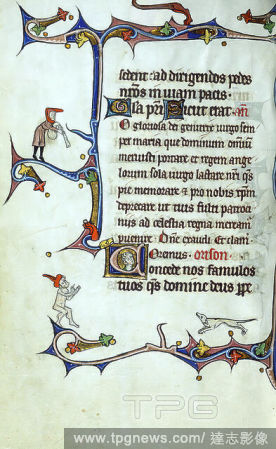 sedent: ad dirigendos pedes
nr̄os in uiam pacis.
Gl̄a pr̄i Sicut erat. añ
O gloriosa dei genitrix uirgo sem
per maria que dominum om̄iū
meruisti portare et regem ange
lorum sola uirgo lactare nr̄i qs̄
pie memorare & pro nobis xp̄m
deprecare ut tuis fulti patroci
niis ad celestia regna meream̄
peruenire. Dñe exaudi. Et clam̄
Oremus. orison.
Concede nos famulos
tuos qs̄ domine deus
TPG
www.tpgnews.com/ 達志影像